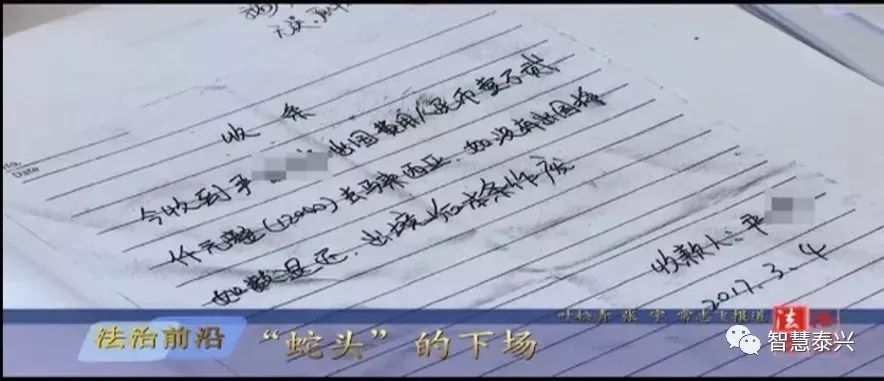 收条
No.
Date
今收到于 出国费用人民币壹万贰
仟元整(12000)去马来西亚.如没有出国将
如数退还.出境后本条作废
收款人:平
2017.3.4
叶检青 张宇 常志飞报道
法治前沿 “蛇头”的下场
法治
智慧泰兴